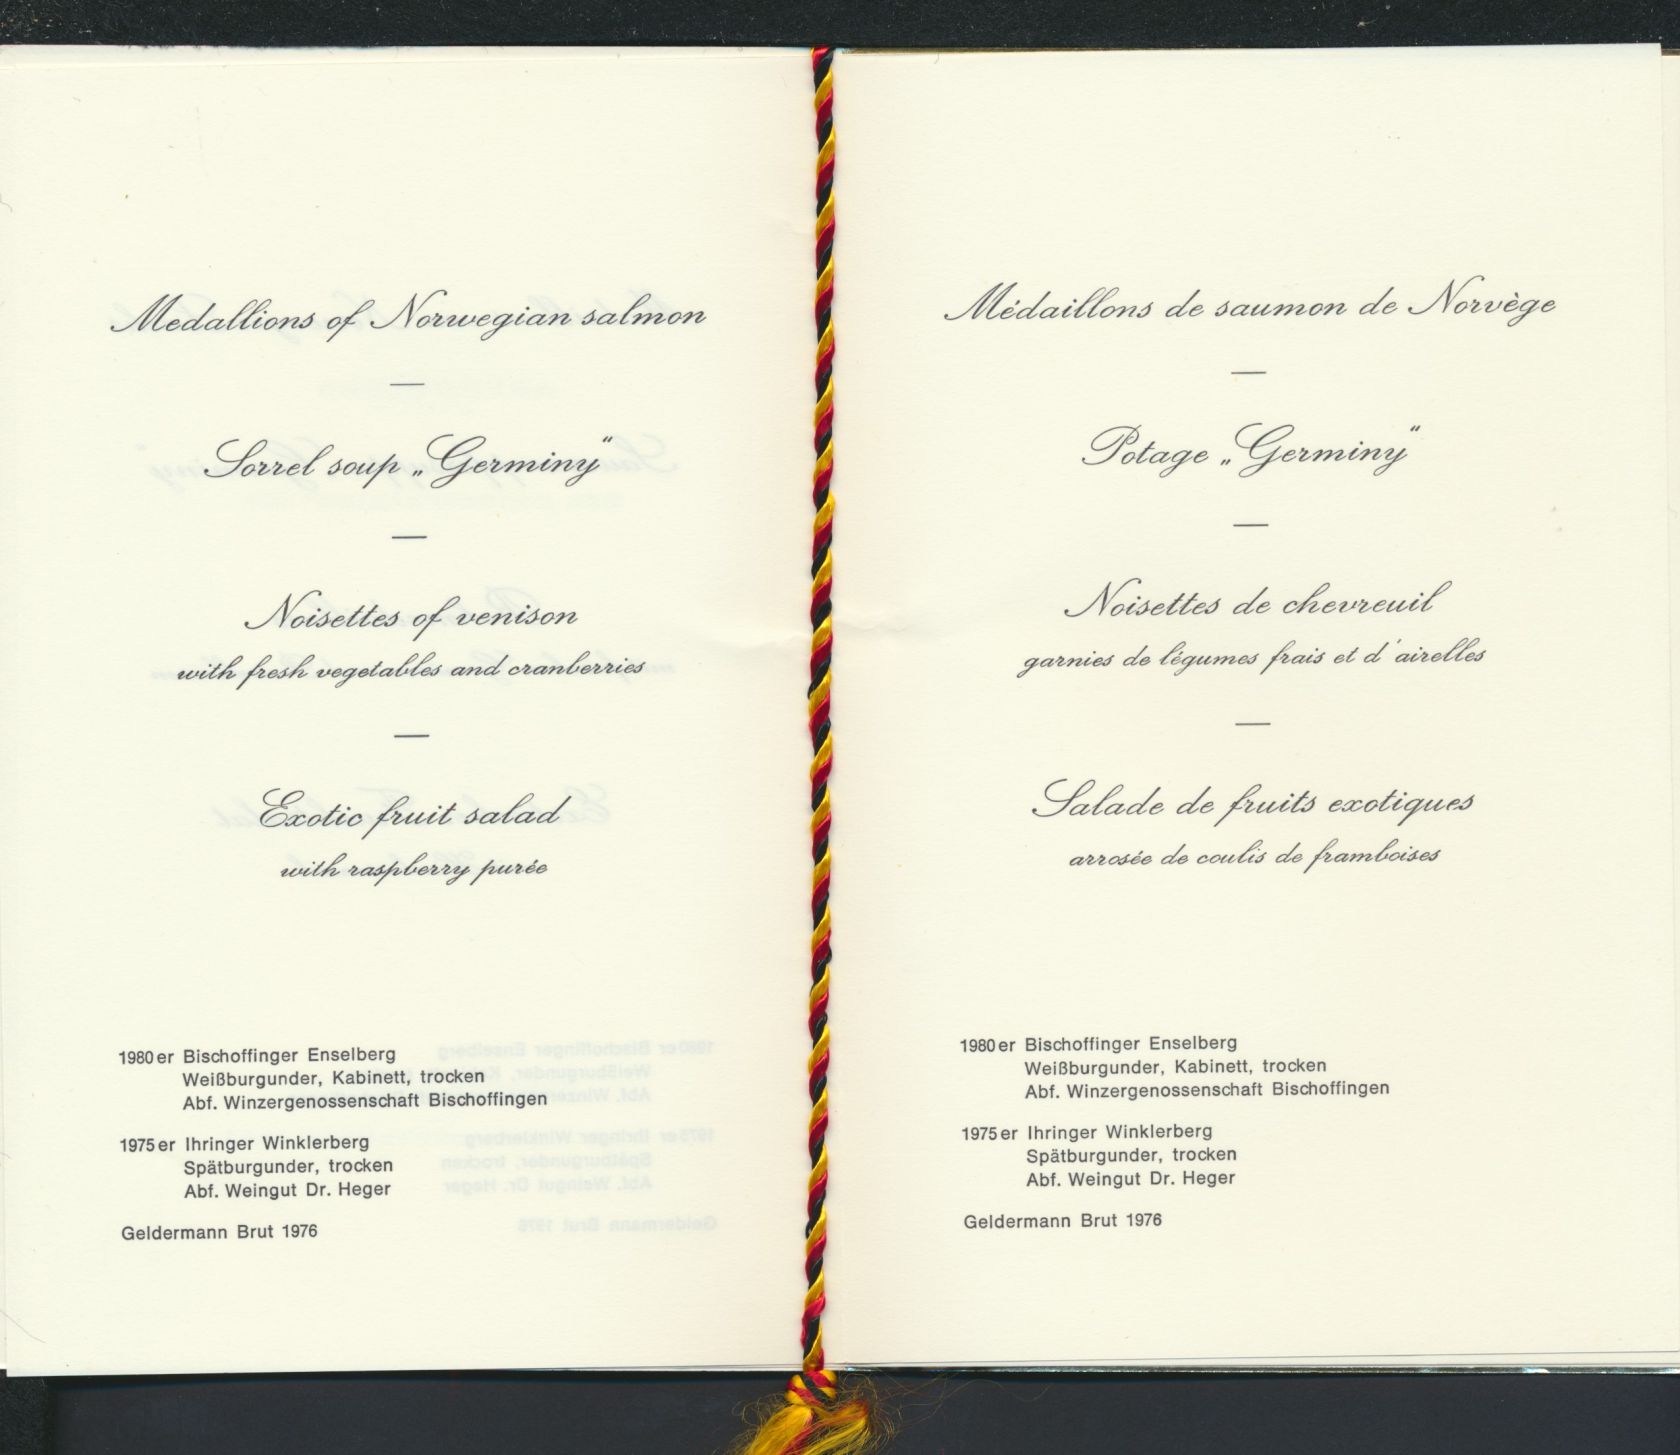 Medallions of Norwegian salmon
—
Sorrel soup „Germiny"
—
Noisettes of venison
with fresh vegetables and cranberries
—
Exotic fruit salad
with raspberry purée
1980er Bischoffinger Enselberg
Weißburgunder, Kabinett, trocken
Abf. Winzergenossenschaft Bischoffingen
1975er Ihringer Winklerberg
Spätburgunder, trocken
Abf. Weingut Dr. Heger
Geldermann Brut 1976
Médaillons de saumon de Norvège
—
Potage „Germiny"
—
Noisettes de chevreuil
garnies de légumes frais et d'airelles
—
Salade de fruits exotiques
arrosée de coulis de framboises
1980er Bischoffinger Enselberg
Weißburgunder, Kabinett, trocken
Abf. Winzergenossenschaft Bischoffingen
1975er Ihringer Winklerberg
Spätburgunder, trocken
Abf. Weingut Dr. Heger
Geldermann Brut 1976